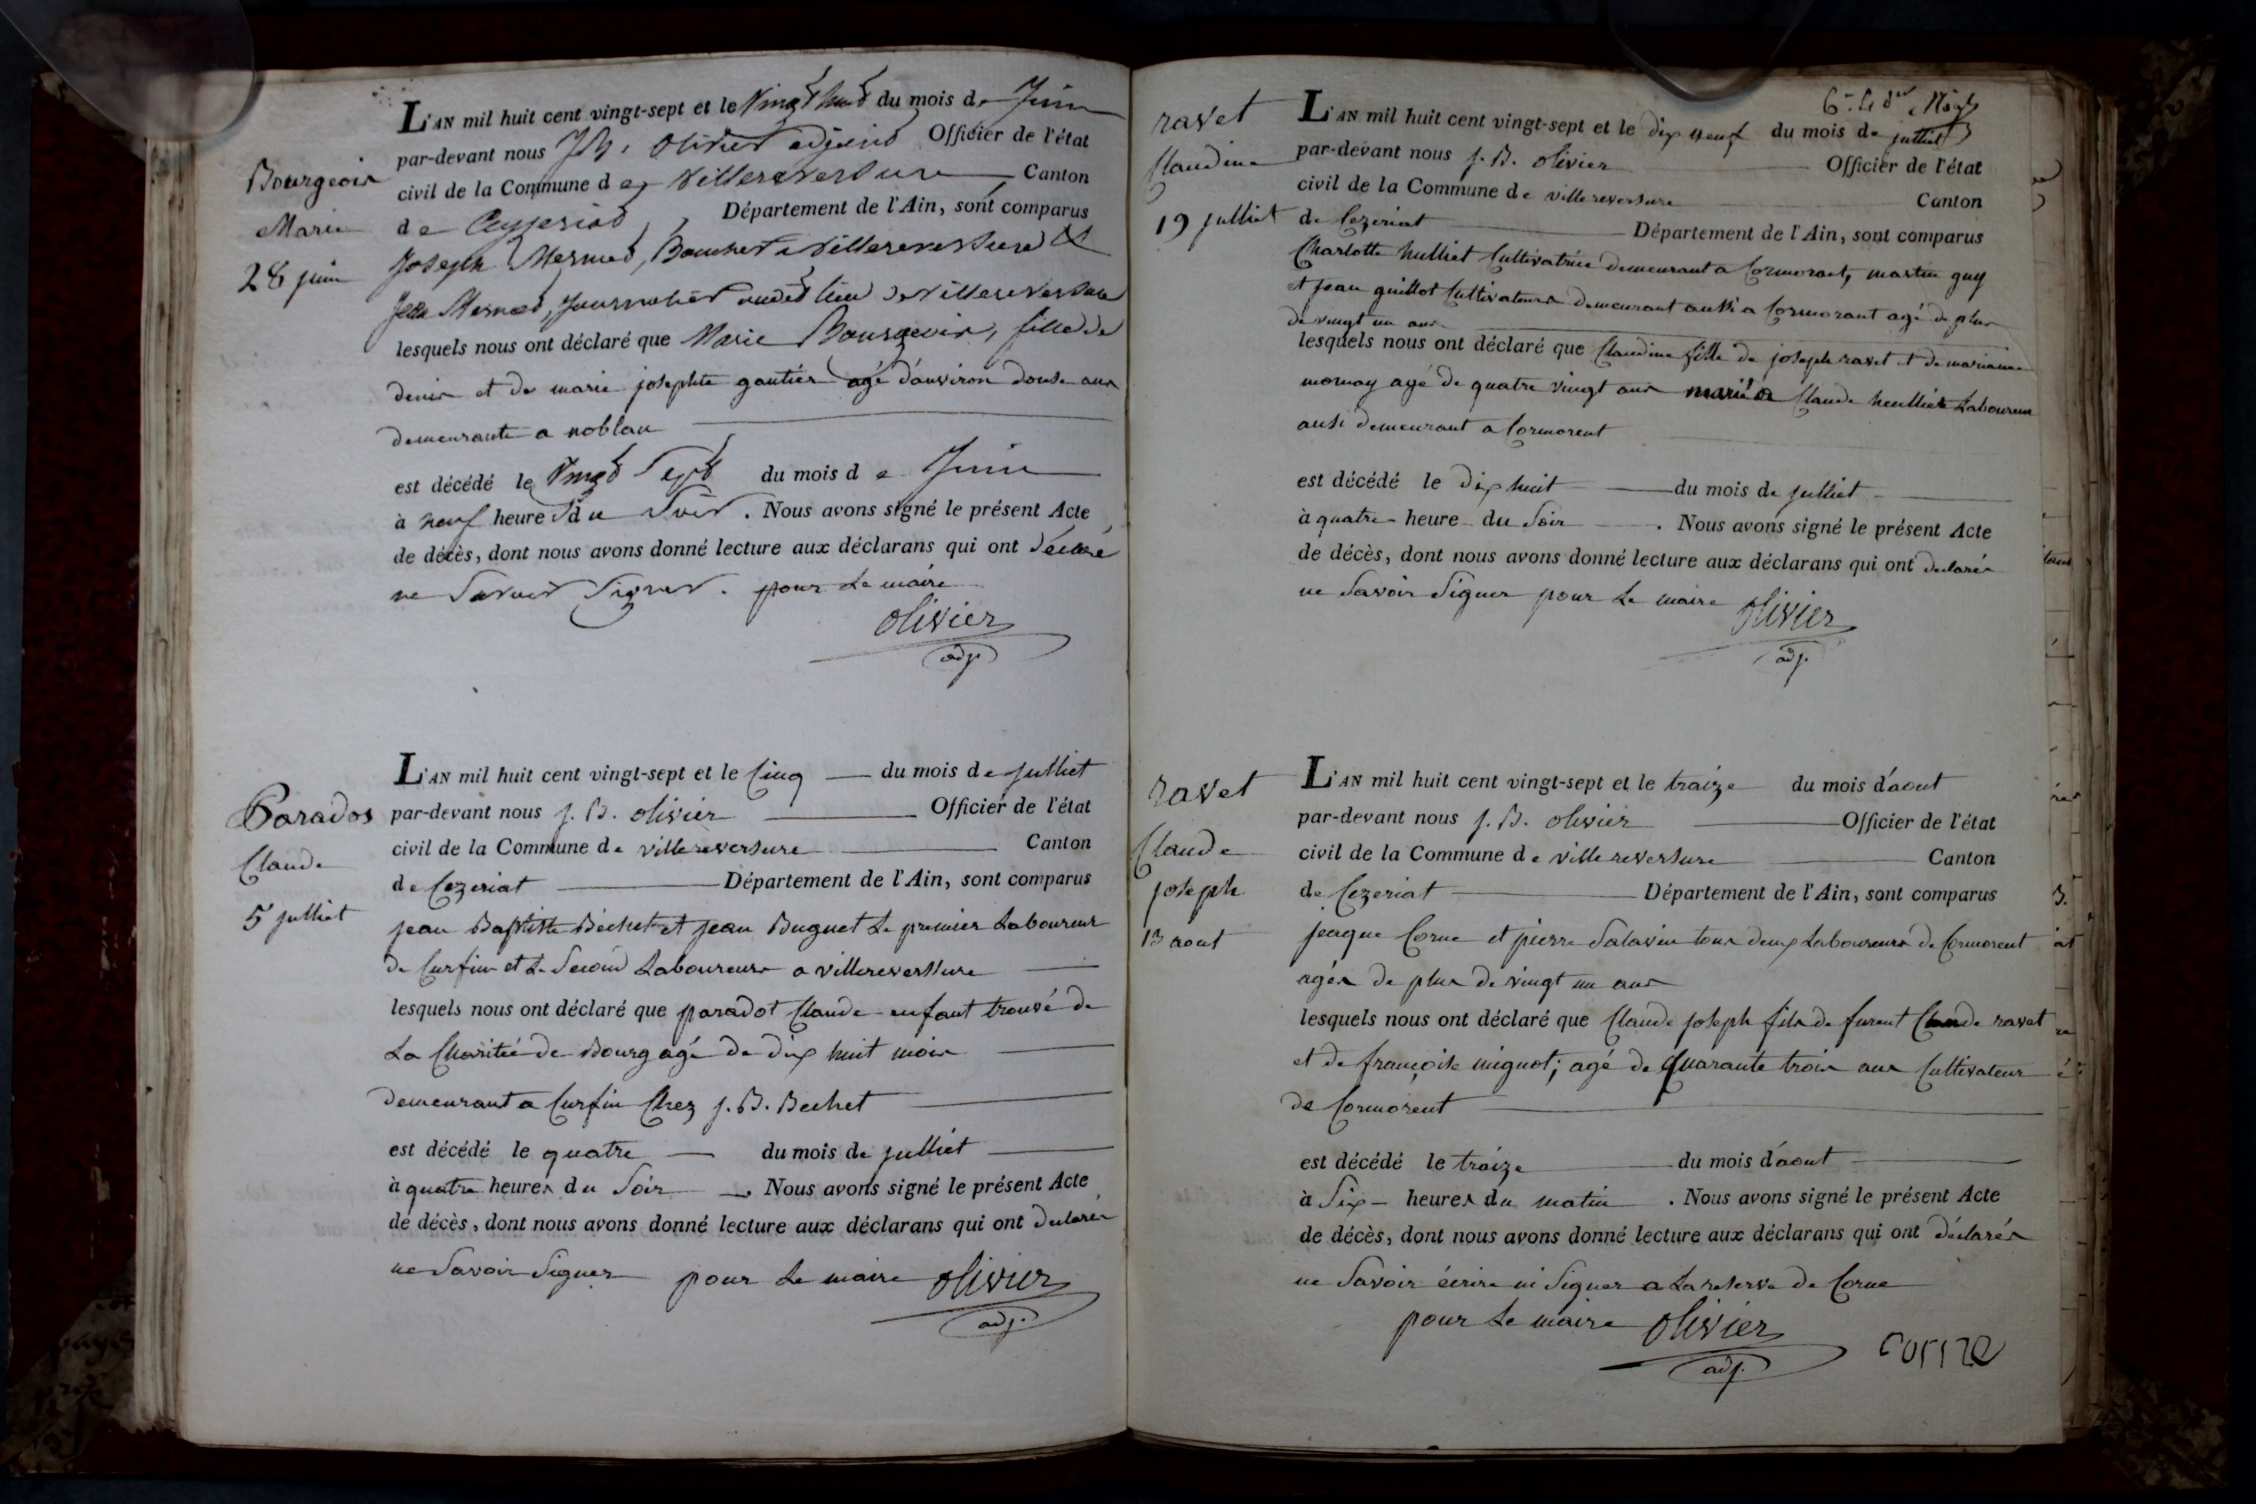 Bourgeois
Marie
28 juin
L'AN mil huit cent vingt-sept et le Vingt huit du mois de Juin
par-devant nous J. B. Olivier adjoint Officier de l'état
civil de la Commune de Villereversure Canton
de Ceyzeriat, Département de l'Ain, sont comparus
Joseph Mesnard, Boucher a Villereversure &
Jean Mesnard, Journalier audit lieu de Villereversure
lesquels nous ont déclaré que Marie Bourgeois, fille de
denis et de marie josephte gautier agé d'anviron douse ans
demeurante a noblan
est décédé le Vingt Sept du mois de Juin
à neuf heures du Soir. Nous avons signé le présent Acte
de décès, dont nous avons donné lecture aux déclarans qui ont déclaré
ne Savoir Signer. pour Le maire
Olivier
adj.
Parados
Claude
5 julliet
L'AN mil huit cent vingt-sept et le Cinq du mois de julliet
par-devant nous j. B. olivier Officier de l'état
civil de la Commune de villereversure Canton
de Cezeriat Département de l'Ain, sont comparus
jean Baptiste Béchet et jean Buguet Le premier Laboureur
de Curfin et Le Second Laboureurs a villereverssure
lesquels nous ont déclaré que paradot Claude enfant trouvé de
La Charitée de Bourg agé de dix huit mois
demeurant a Curfin Chez j. B. Bechet
est décédé le quatre du mois de julliet
à quatre heures du Soir. Nous avons signé le présent Acte
de décès, dont nous avons donné lecture aux déclarans qui ont declarés
ne Savoir Signer pour Le maire olivier
adj.
ravet
Claudine
19 julliet
L'AN mil huit cent vingt-sept et le dix neuf du mois de julliet
par-devant nous j. B. olivier Officier de l'état
civil de la Commune de villereversure Canton
de Cezeriat Département de l'Ain, sont comparus
Charlotte hulliet Cultivatrice demeurant a Cormorant, martin guy
et jean guillot Cultivateurs demeurant aussi a Cormorant agé de plus
de vingt un ans
lesquels nous ont déclaré que Claudine fille de joseph ravet et de marianne
mornay agé de quatre vingt ans mariée a Claude heulliet Laboureur
ausi demeurant a Cormorent
est décédé le dix huit du mois de julliet
à quatre heure du Soir. Nous avons signé le présent Acte
de décès, dont nous avons donné lecture aux déclarans qui ont declarés
ne Savoir Signer pour Le maire olivier
adj.
ravet
Claude
joseph
13 aout
L'AN mil huit cent vingt-sept et le traize du mois d'aout
par-devant nous j. B. olivier Officier de l'état
civil de la Commune de villereversure Canton
de Cezeriat Département de l'Ain, sont comparus
jeaque Corne et pierre Salavin tous deux Laboureurs de Cormorent
agés de plus de vingt un ans
lesquels nous ont déclaré que Claude joseph fils de furent Claude ravet
et de françoise mignot; agé de quarante trois ans Cultivateur
de Cormorent
est décédé le traize du mois d'aout
à Six heures du matin. Nous avons signé le présent Acte
de décès, dont nous avons donné lecture aux déclarans qui ont déclarés
ne Savoir écrire ni Signer a La reserve de Corne
pour Le maire olivier
adj.
corne